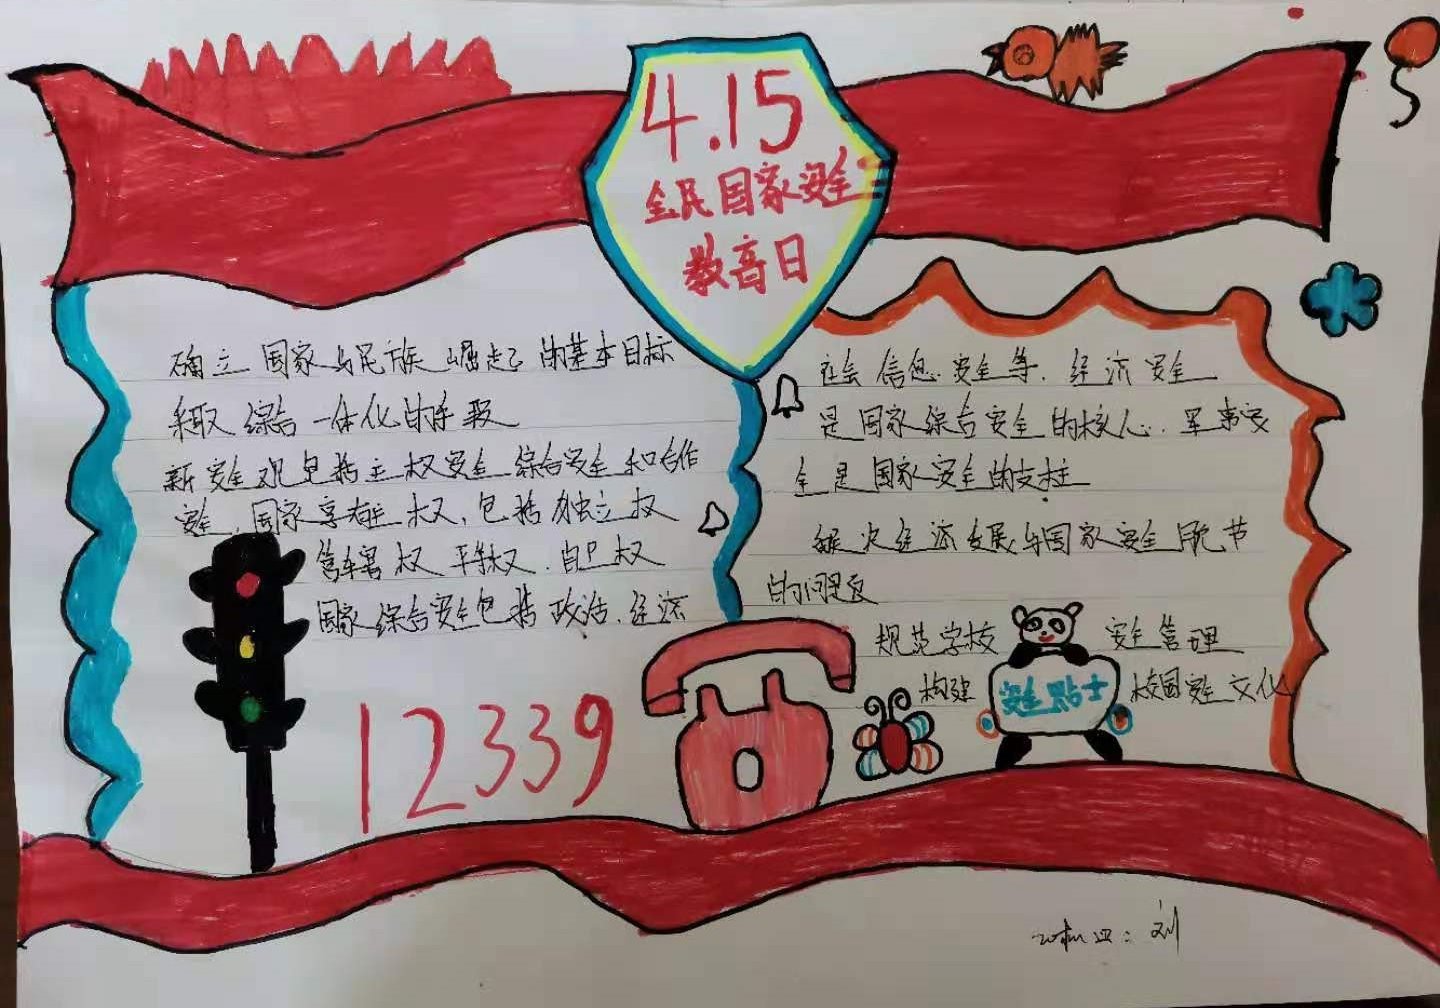 4.15
全民国家安全
教育日
确立国家与民族崛起的基本目标
采取综合一体化的手段
新安全观包括主权安全 综合安全和合作
安全，国家享有主权，包括独立权
管辖权 平等权、自卫权
国家综合安全包括政治、经济
12339
社会信息安全等、经济安全
是国家综合安全的核心、军事安
全是国家安全的支柱
解决经济发展与国家安全脱节
的问题
规范学校 安全管理
构建 校园安全文化
安全贴士
刘